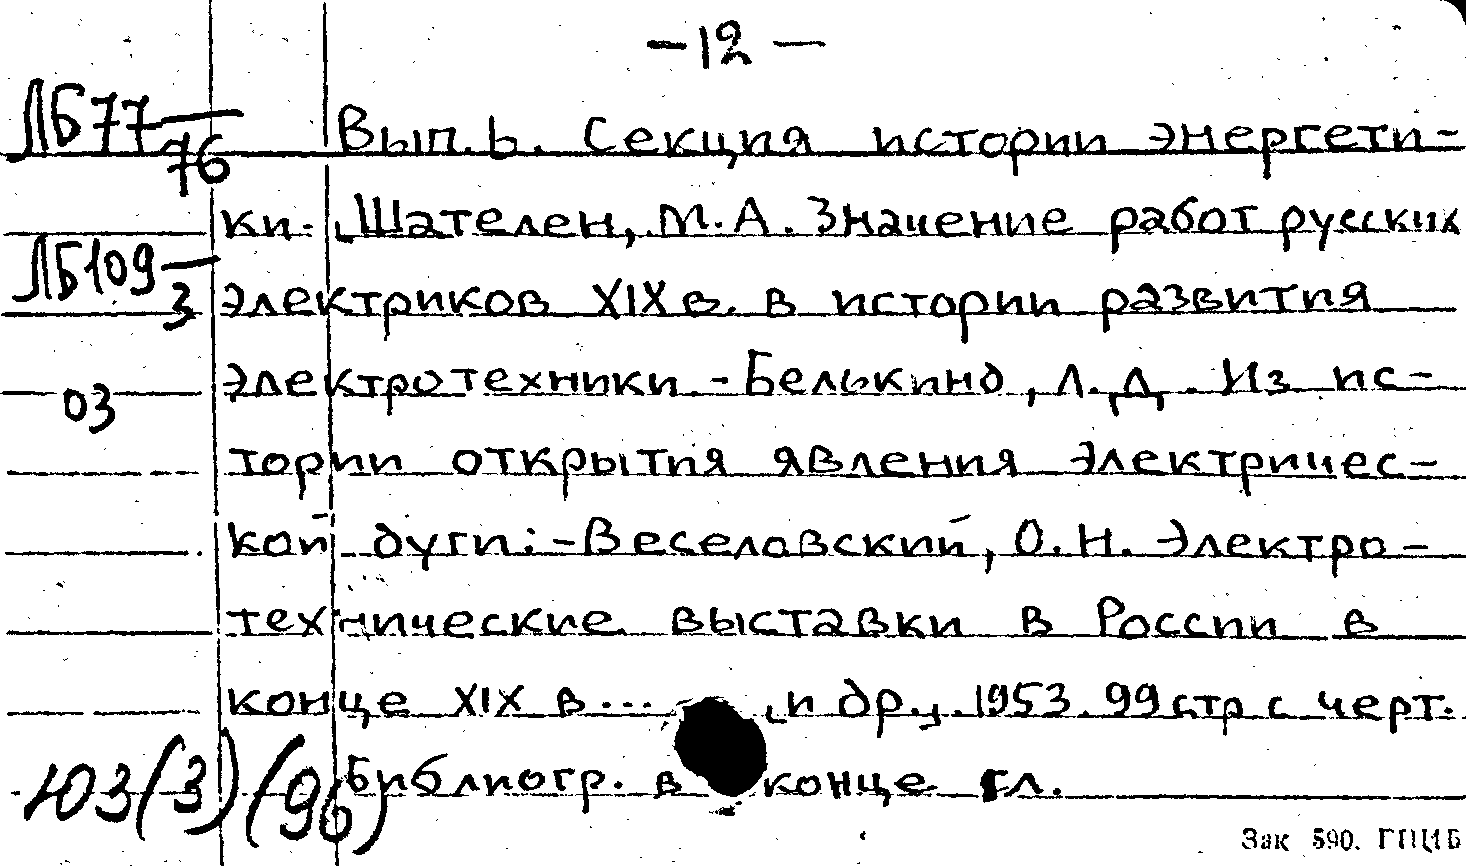 — 12 —
ЛБ77
76
Вып. 6. Секция истории энергети-
ки. [Шателен, М. А. Значение работ русских
ЛБ109
3
электриков XIX в. в истории развития
электротехники. - Белькинд, Л. Д. Из ис-
03
тории открытия явления электричес-
кой дуги. - Веселовский, О. Н. Электро-
технические выставки в России в
конце XIX в... и др.]. 1953. 99 стр с черт.
Библиогр. в конце гл.
103(3) (96)
Зак 590. ГПЦ1Б